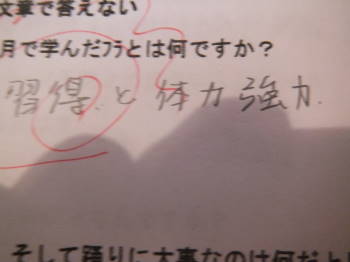 文章で答えない
月で学んだフラとは何ですか？
習得.と体力強力.
そして踊りに大事なのは何だと